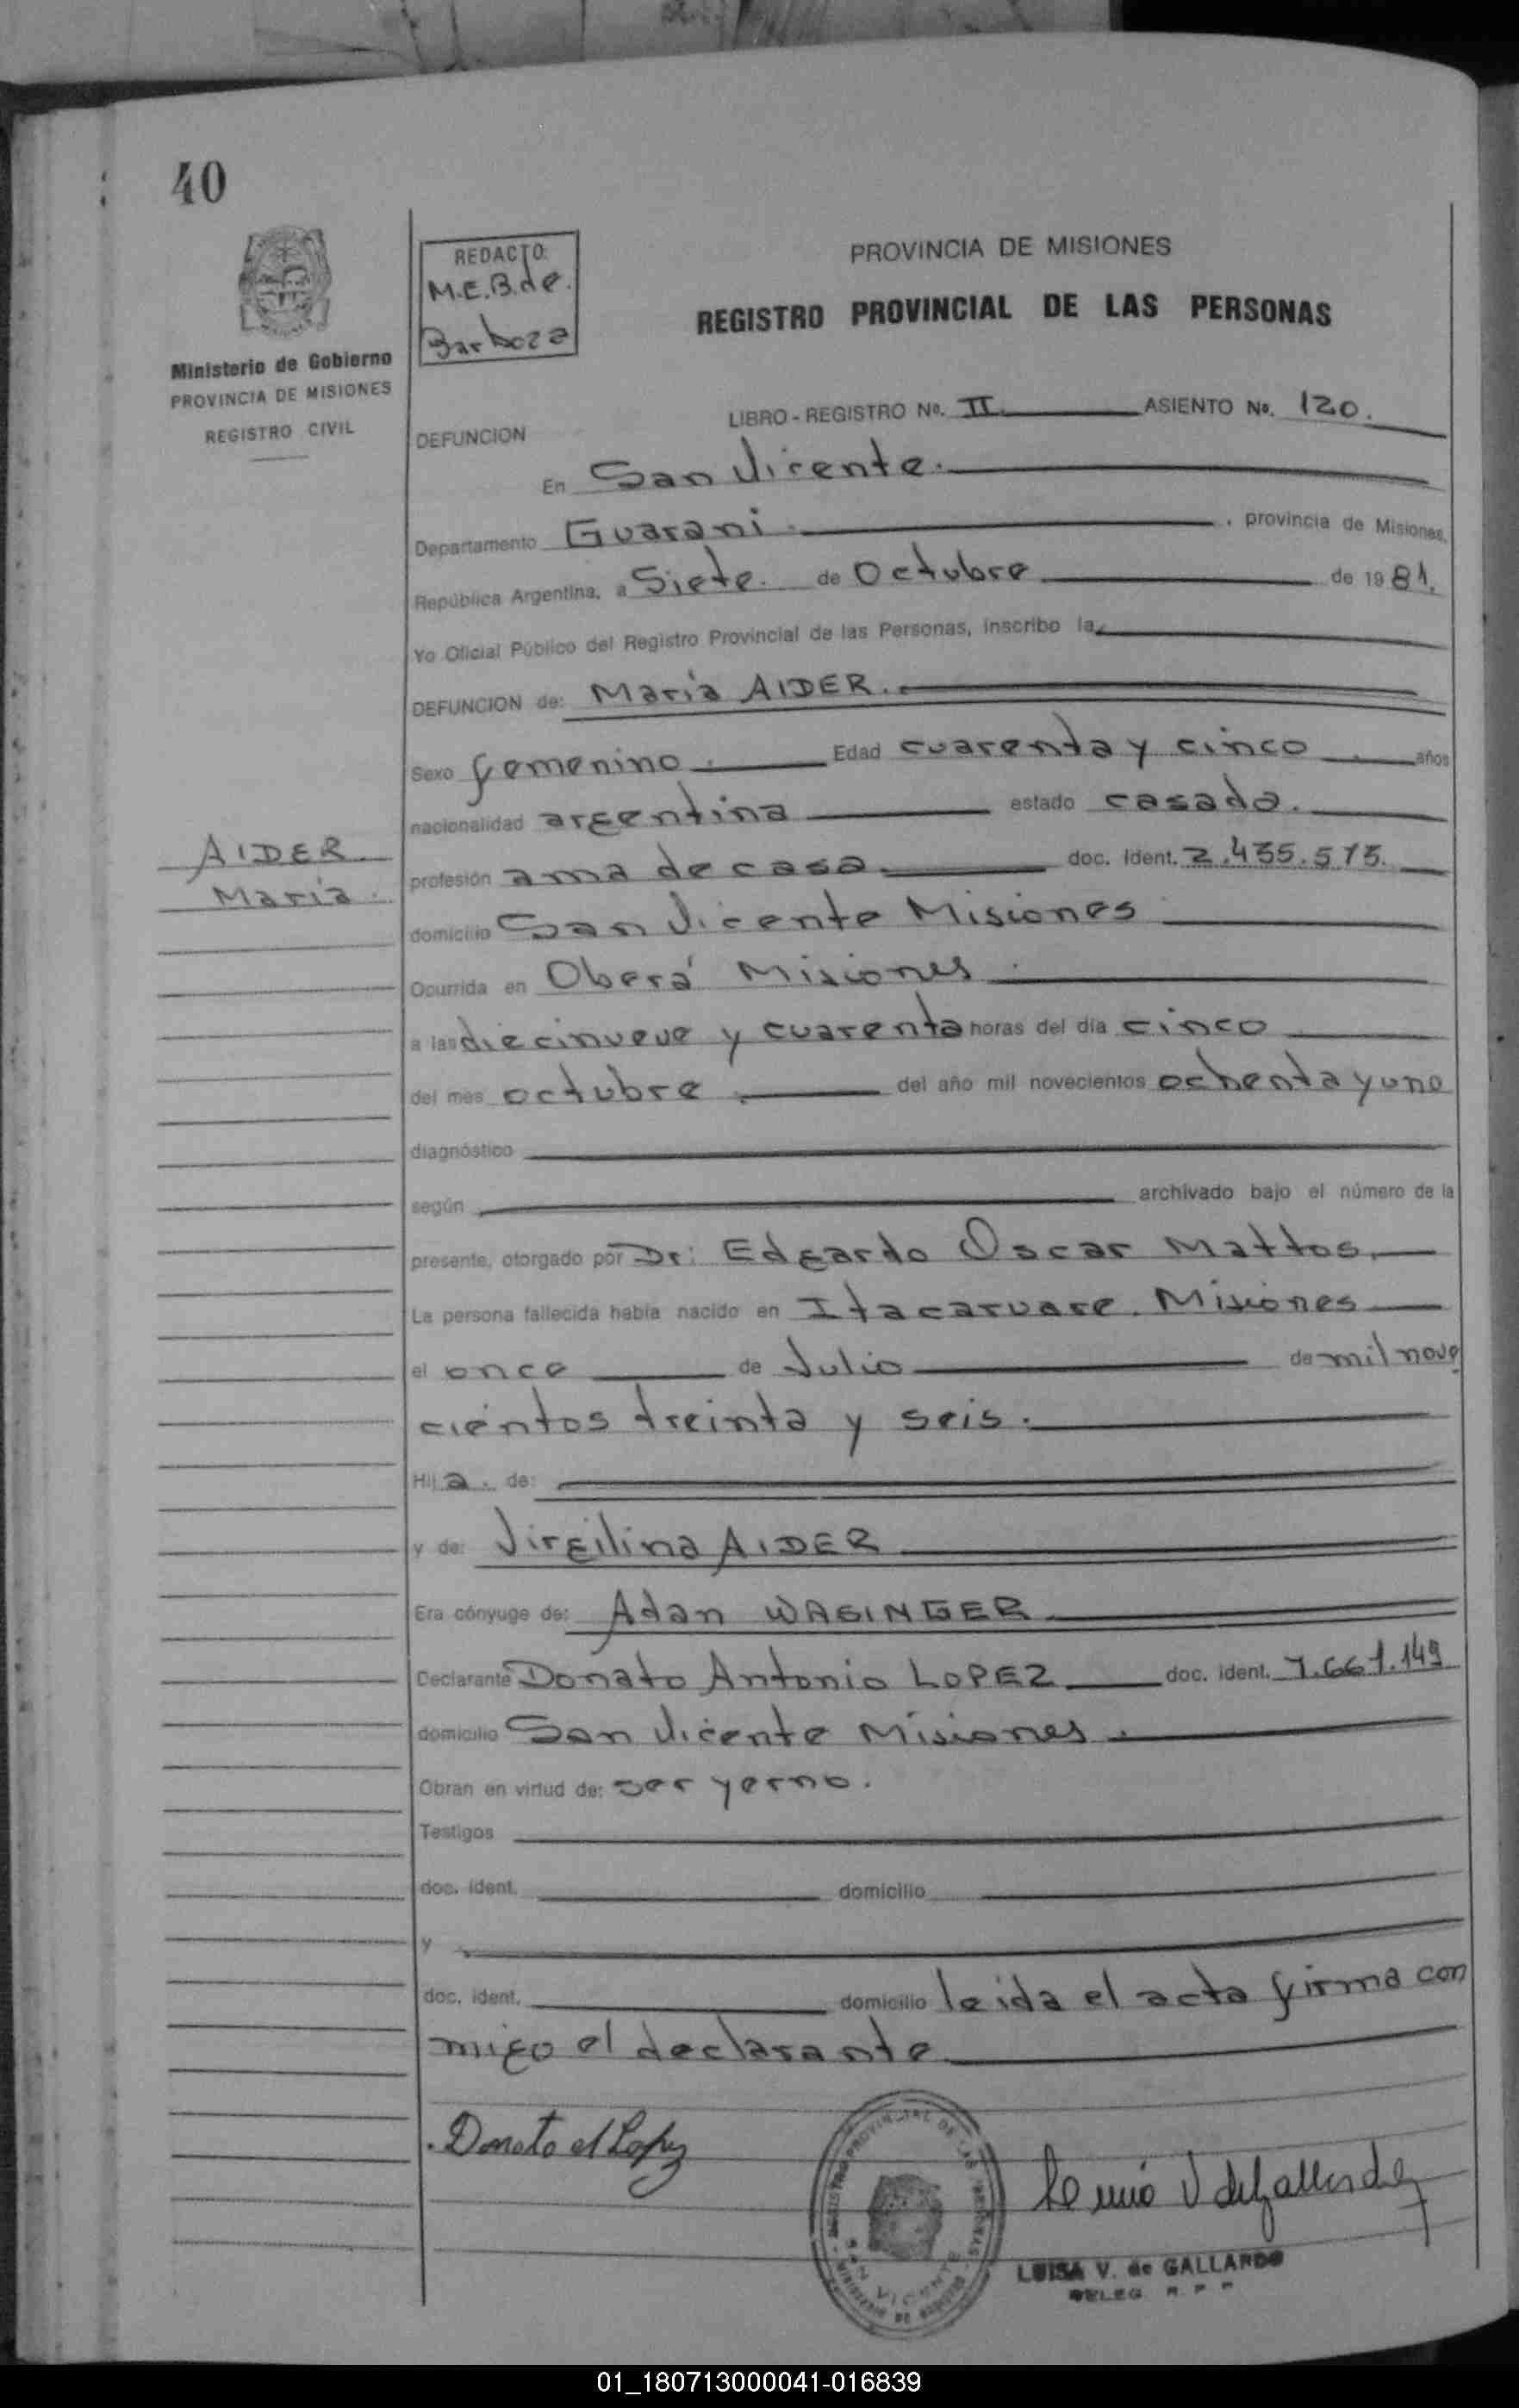 40
REDACTO:
M.E.B. de
Barboza
PROVINCIA DE MISIONES
REGISTRO PROVINCIAL DE LAS PERSONAS
Ministerio de Gobierno
PROVINCIA DE MISIONES
REGISTRO CIVIL
LIBRO - REGISTRO No. II ASIENTO No. 120.
DEFUNCION
En San Vicente.
Departamento Guarani. , provincia de Misiones,
República Argentina, a Siete. de Octubre de 1981.
Yo Oficial Público del Registro Provincial de las Personas, inscribo la
DEFUNCION de: Maria AIDER.
Sexo femenino. Edad cuarenta y cinco años
nacionalidad argentina estado casada.
AIDER
Maria.
profesión ama de casa. doc. ident. 2.435.515.
domicilio San Vicente Misiones
Ocurrida en Oberá Misiones.
a las diecinueve y cuarenta horas del día cinco
del mes octubre. del año mil novecientos ochenta y uno
diagnóstico
según archivado bajo el número de la
presente, otorgado por Dr: Edgardo Oscar Mattos.
La persona fallecida había nacido en Itacaruare. Misiones
el once de Julio de mil nove
cientos treinta y seis.
Hij a. de:
y de: Virgilina AIDER
Era cónyuge de: Adan WASINGER
Declarante Donato Antonio LOPEZ doc. ident. 7.661.149
domicilio San Vicente Misiones.
Obran en virtud de: ser yerno.
Testigos
doc. ident. domicilio
y
doc. ident. domicilio leida el acta firma con
migo el declarante
Donato A Lopez
SAN VICENTE
LUISA V. de GALLARDO
DELEG R. P. P
01_180713000041-016839